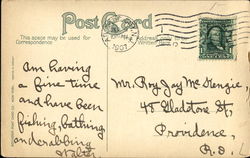 Post Card
This space may be used for
Correspondence
1907
I am having
a fine time
and have been
fishing, bathing,
and crabbing
Walter
Mr. Roy Jay McKenzie,
48 Gladstone St,
Providence,
R.I.